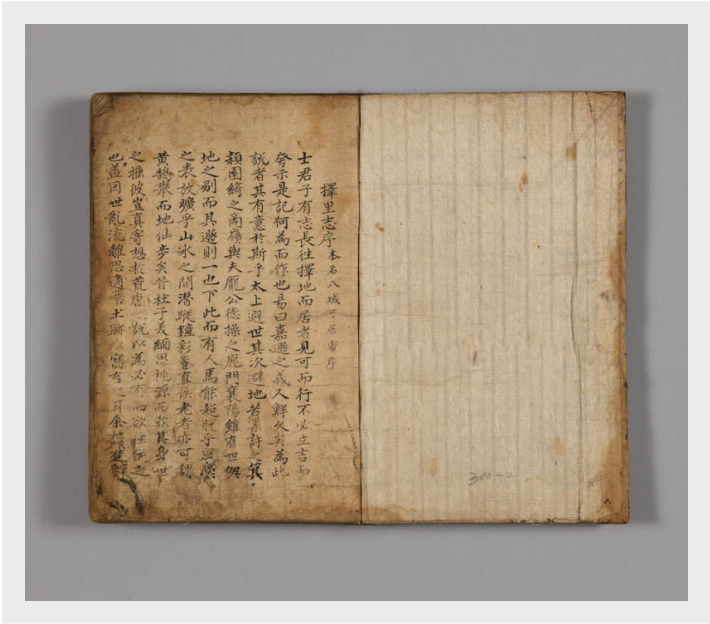 擇里志序 本名八域可居考序
士君子有志長往擇地而居者見可而行不必立言而
示是記何為而作也易曰嘉遯之義人鮮久矣為此
說者其有意於斯乎太上避世其次避地若巢許之箕
潁園綺之商嶺與夫龐公德操之鹿門襄陽雖有世與
地之別而其遯則一也下此而有人焉能超乎塵
之表放曠乎山水之間潛蹤鏟彩老者亦可謂
黃鵠擧而地仙步矣昔杜子美緬思桃源而歎其身世
之拙彼豈真寄想於荒唐之說以為必有而欲往從之
也盖因世亂流離思適樂土聊以寓言之耳余